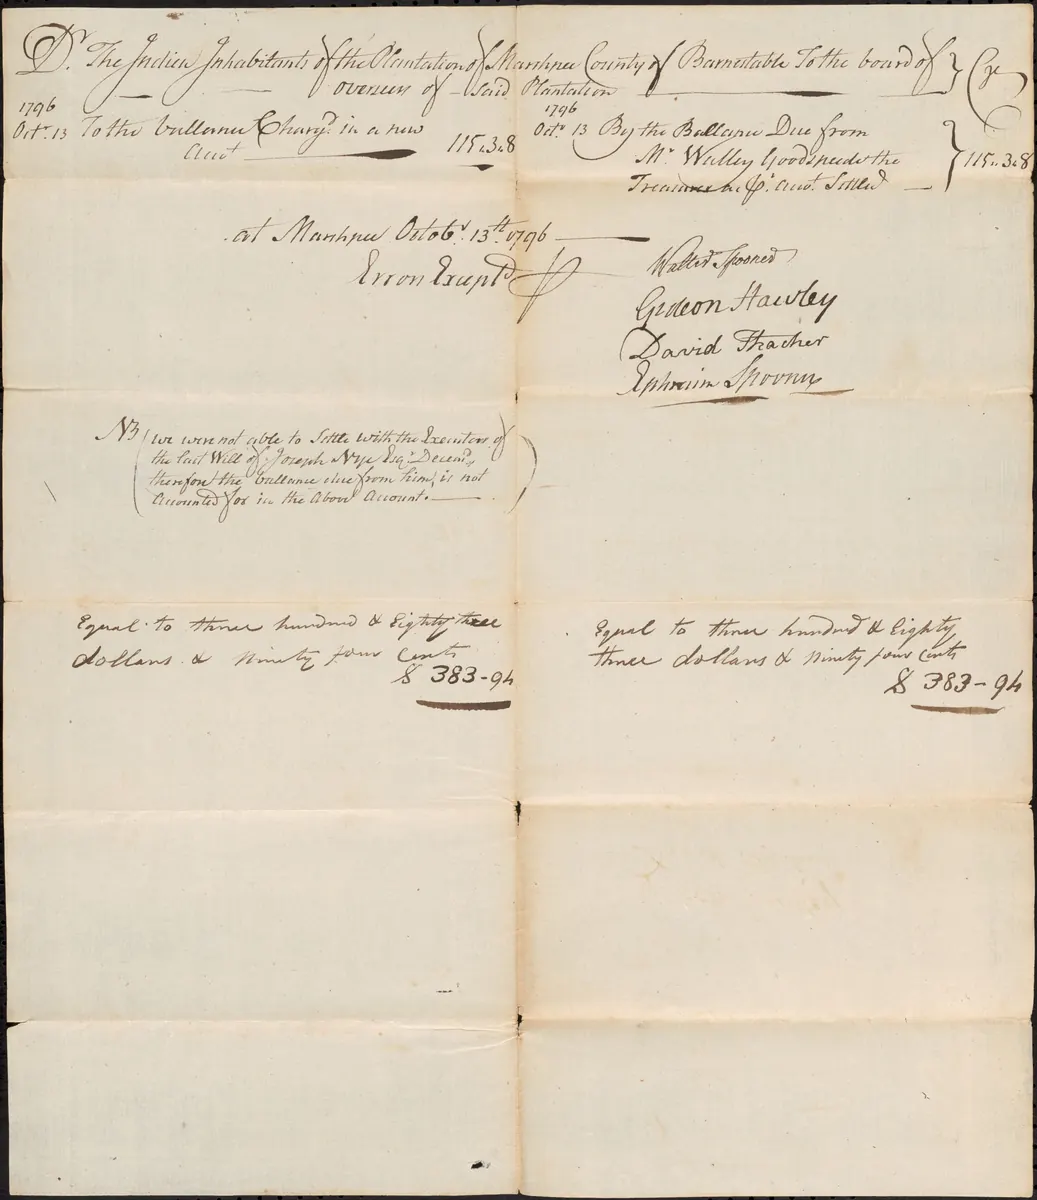 Dr. The Indien Inhabitants of the Plantation of Marshpee County of Barnestable To the board of Cr
overseers of said Plantation
1796
Octr. 13 To the ballance Chargd. in a new
acut 115 „ 3 „ 8
1796
Octr. 13 By the Ballance Due from
Mr. Walley Goodspeed the
Treasurer as pr. acut. Settled 115 „ 3 „ 8
at Marshpee Octobr. 13th. 1796
Erron Exceptd
Walter Spooner
Gideon Hawley
David Thacher
Ephraim Spooner
NB (we were not able to Settle with the Executors of
the last Will of Joseph Nye Esqr. Decead,
therefore the ballance due from him, is not
accounted for in the Above Account.)
Equal to three hundred & Eighty three
dollars & Ninety four Cents
$ 383-94
Equal to three hundred & Eighty
three dollars & Ninety four Cents
$ 383-94